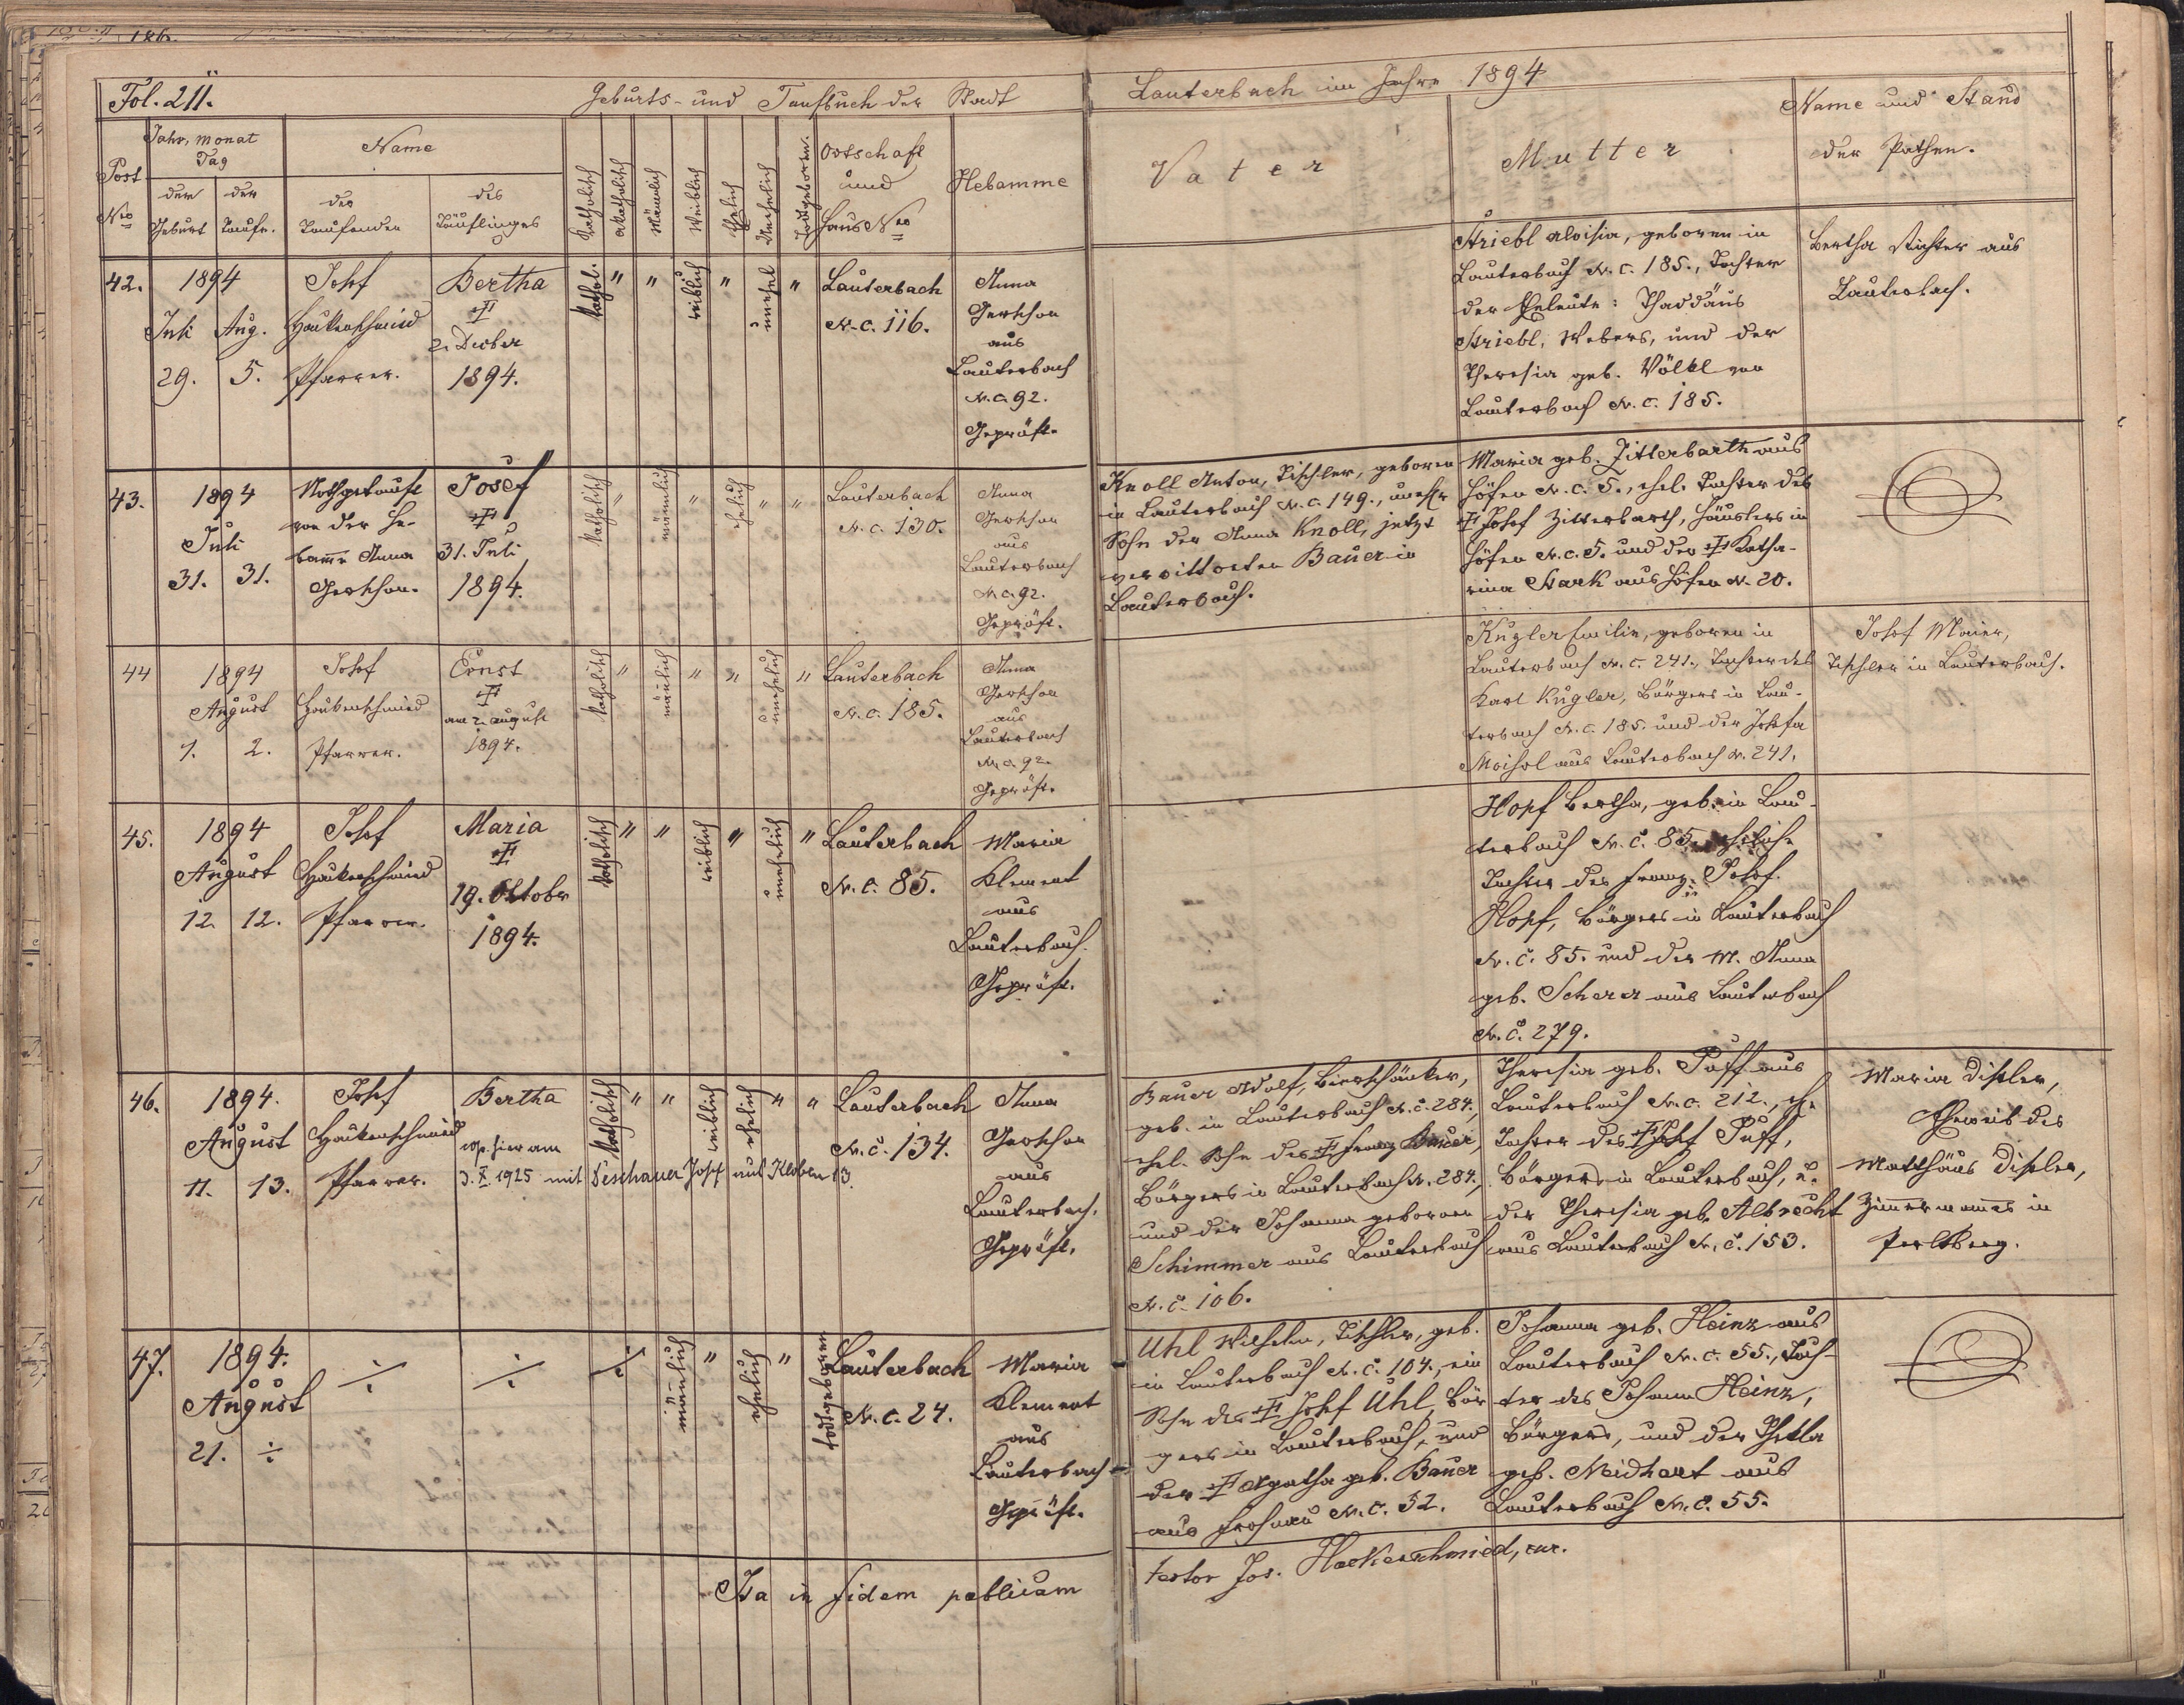 186.
Fol. 211.
Geburts- und Taufbuch der Stadt
Lauterbach im Jahre 1894
Post
Nro
Jahr, Monat
Tag
der
Geburt
der
Taufe.
Name
des
Taufenden
des
Täuflinges
Katholisch
Akatholisch
Männlich
Weiblich
Ehelich
Unehelich
Todtgeboren.
Ortschaft
und
Haus Nro
Hebamme
Vater
Mutter
Name und Stand
der Pathen.
42.
1894
Juli Aug.
29. 5.
Josef
Hackenschmied
Pfarrer.
Bertha
2. Dezber
1894.
kathol.
" "
weiblich
"
unehel
"
Lauterbach
N. C. 116.
Anna
Gerschon
aus
Lauterbach
N. c. 92.
Geprüft.
Striebl Aloisia, geboren in
Lauterbach N. C. 185., Tochter
der Eheleute: Thaddäus
Striebl, Webers, und der
Theresia geb. Völkl von
Lauterbach N. C. 185.
Bertha Richter aus
Lauterbach.
43.
1894
Juli
31. 31.
Nothgetauft
von der He-
bame Anna
Gerschon.
Josef
31. Juli
1894.
katholisch
"
männlich
"
ehelich
" "
Lauterbach
N. c. 130.
Anna
Gerschon
aus
Lauterbach
N. c. 92.
Geprüft.
Knoll Anton, Tischler, geboren
in Lauterbach N. C. 149., unehl.
Sohn der Anna Knoll, jetzt
verwittweten Bauer in
Lauterbach.
Maria geb. Zitterbarth aus
Höfen N. C. 5., ehel. Tochter des
Josef Zitterbarth, Häuslers in
Höfen N. C. 5. und der Katha-
rina Stark aus Höfen N. 20.
44
1894
August
1. 2.
Josef
Hackenschmied
Pfarrer.
Ernst
am 2. August
1894.
katholisch
"
mänlich
" "
unehelich
"
Lauterbach
N. C. 185.
Anna
Gerschon
aus
Lauterbach
N. c. 92.
Geprüft.
Kugler Emilie, geboren in
Lauterbach N. C. 241., Tochter des
Karl Kugler, Bürgers in Lau-
terbach N. C. 185. und der Josefa
Moissl aus Lauterbach N. 241.
Josef Maier,
Tischler in Lauterbach.
45.
1894
August
12. 12.
Josef
Hackenschmied
Pfarrer.
Maria
19. Oktober
1894.
katholisch
" "
weiblich
"
unehelich
"
Lauterbach
N. C. 85.
Maria
Klement
aus
Lauterbach.
Geprüft.
Hopf Bertha, geb. in Lau-
terbach N. C. 85. eheliche
Tochter des Franz Josef
Hopf, Bürgers in Lauterbach
N. C. 85. und der M. Anna
geb. Scherer aus Lauterbach
N. C. 279.
46.
1894.
August
11. 13.
Josef
Hackenschmied
Pfarrer.
Bertha
cop. hier am
3. X. 1925 mit Peschauer Josef aus Kloben 13.
katholisch
" "
weiblich
ehelich
" "
Lauterbach
N. C. 134.
Anna
Gerschon
aus
Lauterbach.
Geprüft.
Bauer Adolf, Bierschänker,
geb. in Lauterbach N. C. 284.,
ehel. Sohn des Franz Bauer,
Bürgers in Lauterbach N. 284.,
und der Johanna geborenen
Schimmer aus Lauterbach
N. C. 106.
Theresia geb. Puff aus
Lauterbach N. C. 212., ehe.
Tochter des Josef Puff,
Bürgers in Lauterbach, u.
der Theresia geb. Albrecht
aus Lauterbach N. C. 153.
Maria Distler,
Eheweib des
Matthäus Distler,
Zimmermannes in
Perlsberg.
47.
1894.
August
21. ÷
÷ ÷ ÷
mänlich
"
ehelich
"
todtgeboren
Lauterbach
N. C. 24.
Maria
Klement
aus
Lauterbach
Geprüft.
Uhl Wilhelm, Tischler, geb.
in Lauterbach N. C. 104., ein
Sohn des Josef Uhl, Bür-
gers in Lauterbach, und
der Agatha geb. Bauer
aus Frohnau N. C. 52.
Johanna geb. Heinz aus
Lauterbach N. C. 55., Toch-
ter des Johann Heinz,
Bürgers, und der Thekla
geb. Neidhart aus
Lauterbach N. C. 55.
Ita in fidem publicam
testor Jos. Hackenschmied, cur.